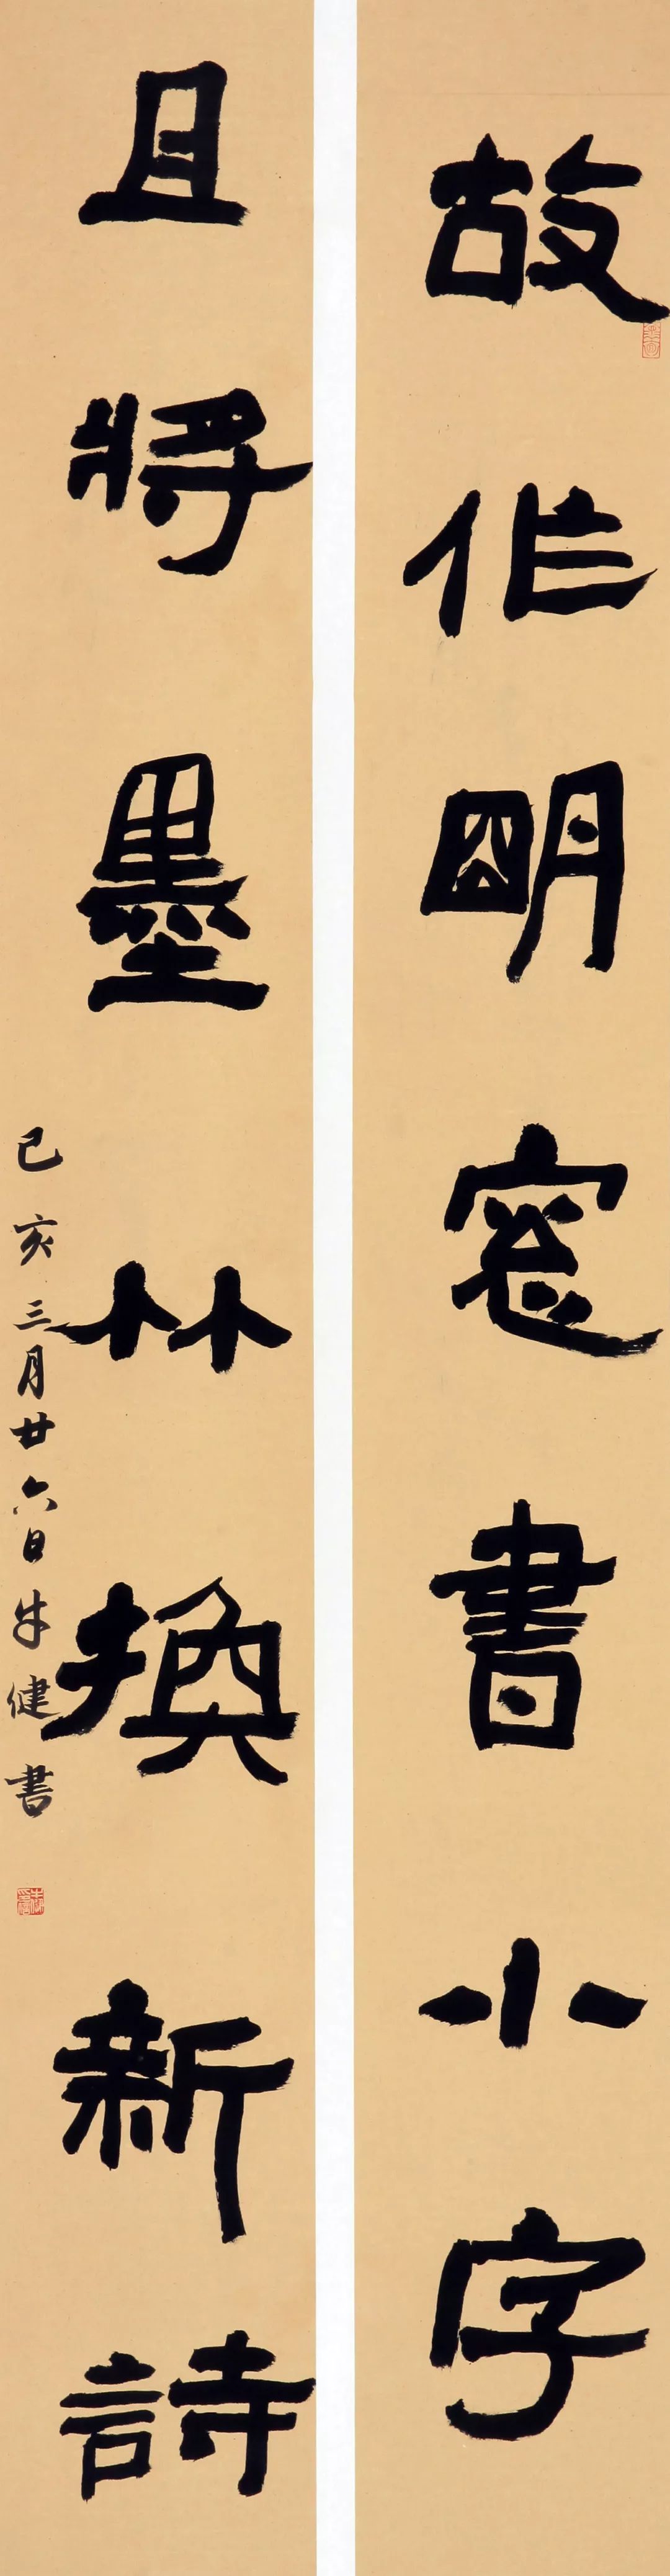 故作明窓書小字
且將墨竹換新詩
己亥三月廿六日朱健書